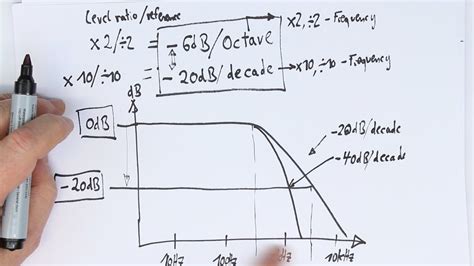 Level ratio/reference
x2/÷2 = -6dB/Octave x2,÷2 - Frequency
x10/÷10 = -20dB/decade x10,÷10 - Frequency
dB
0dB
-20dB/decade
-40dB/decade
-20dB
10Hz 100Hz 10kHz